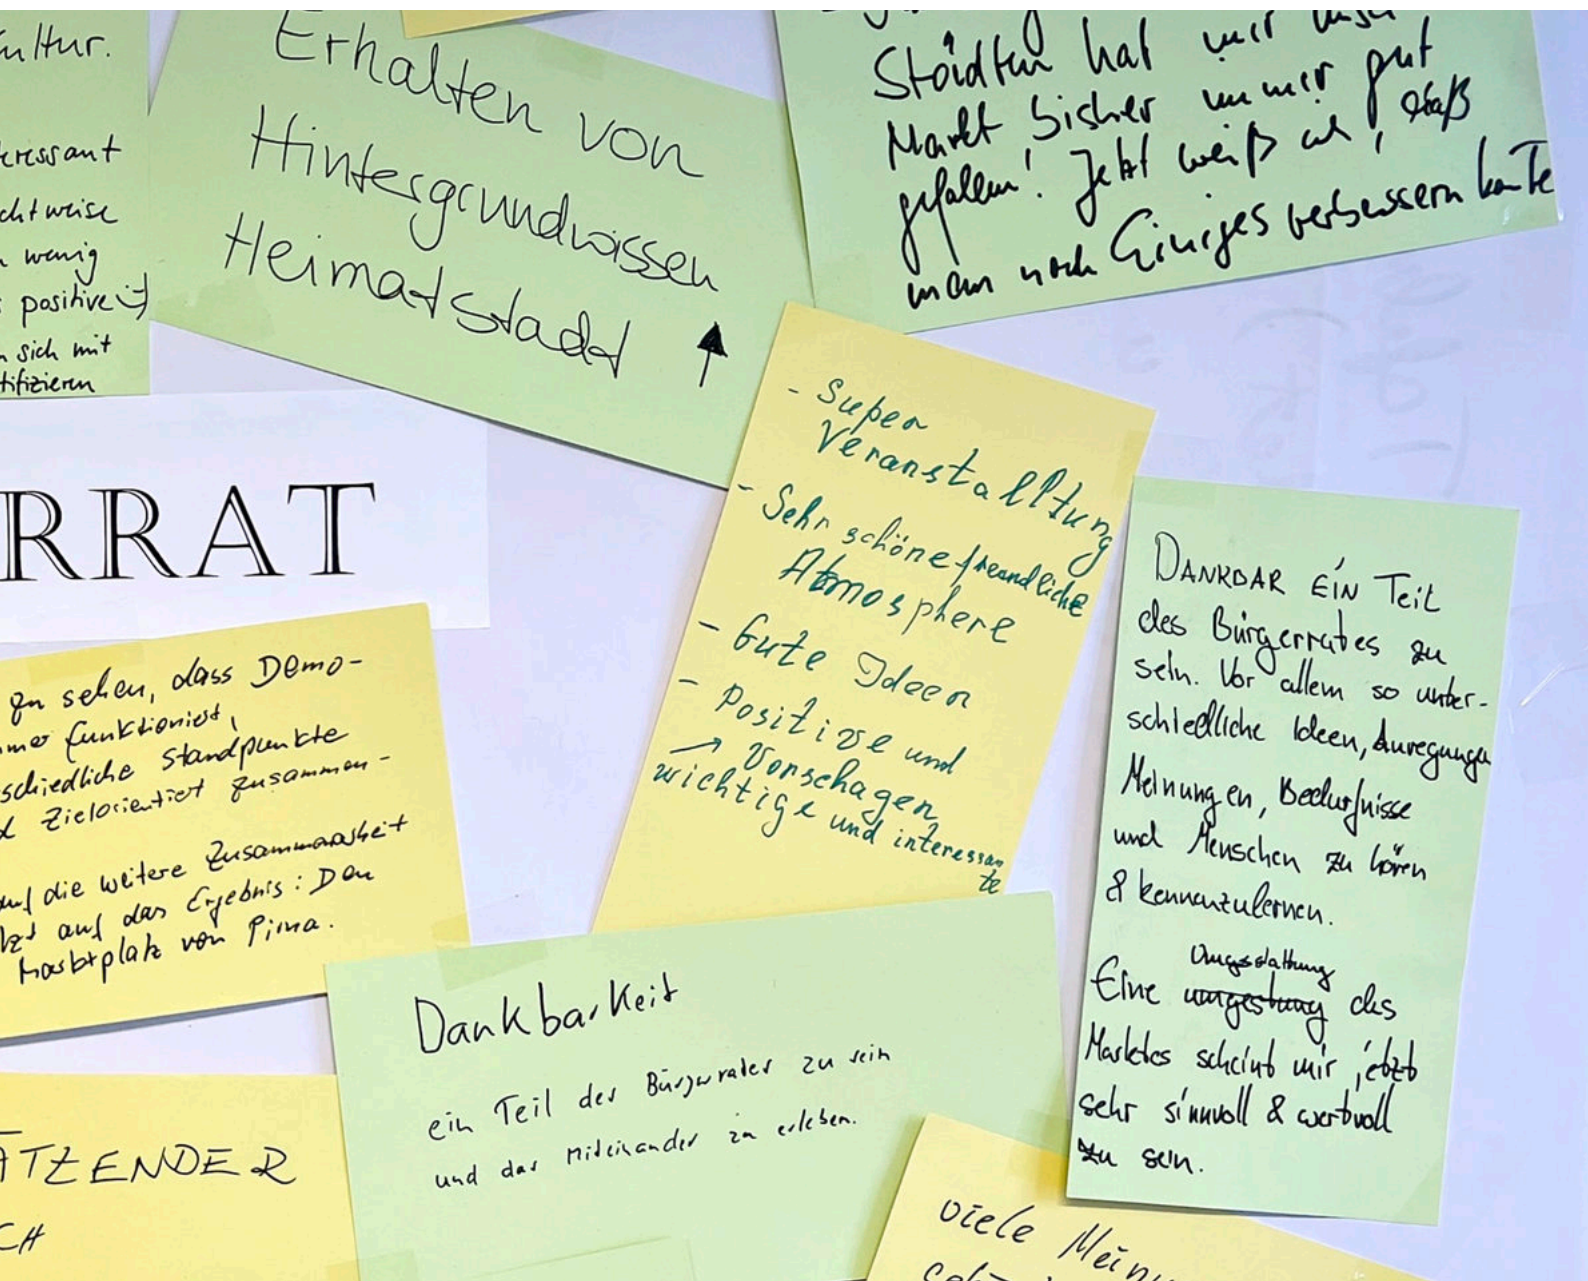 ultur.
eressant
chtweise
n wenig
s positive :)
n sich mit
tifizieren
Erhalten von
Hintergrundwissen
Heimatstadt ↑
Städten hat mir unser
Markt bisher immer gut
gefallen! Jetzt weiß ich, daß
man noch Einiges verbessern könnte
RRAT
- Super
Veranstalltung
- Sehr schöne freundliche
Atmosphere
- Gute Ideen
- Positive und
→ Vorschagen
wichtige und interessan
te
DANKBAR EIN Teil
des Bürgerrates zu
sein. Vor allem so unter-
schiedliche Ideen, Anregungen
Meinungen, Bedürfnisse
und Menschen zu hören
& kennenzulernen.
Umgestaltung
Eine des
Marktes scheint mir jetzt
sehr sinnvoll & wertvoll
zu sein.
zu sehen, dass Demo-
mmer funktioniert,
schiedliche Standpunkte
Zielorientiert zusammen-
auf die weitere Zusammenarbeit
tzt auf das Ergebnis: Den
Marktplatz von Pirna.
Dankbarkeit
ein Teil des Bürgerrates zu sein
und das Miteinander zu erleben.
ÄTZENDER
CH
viele Meinu